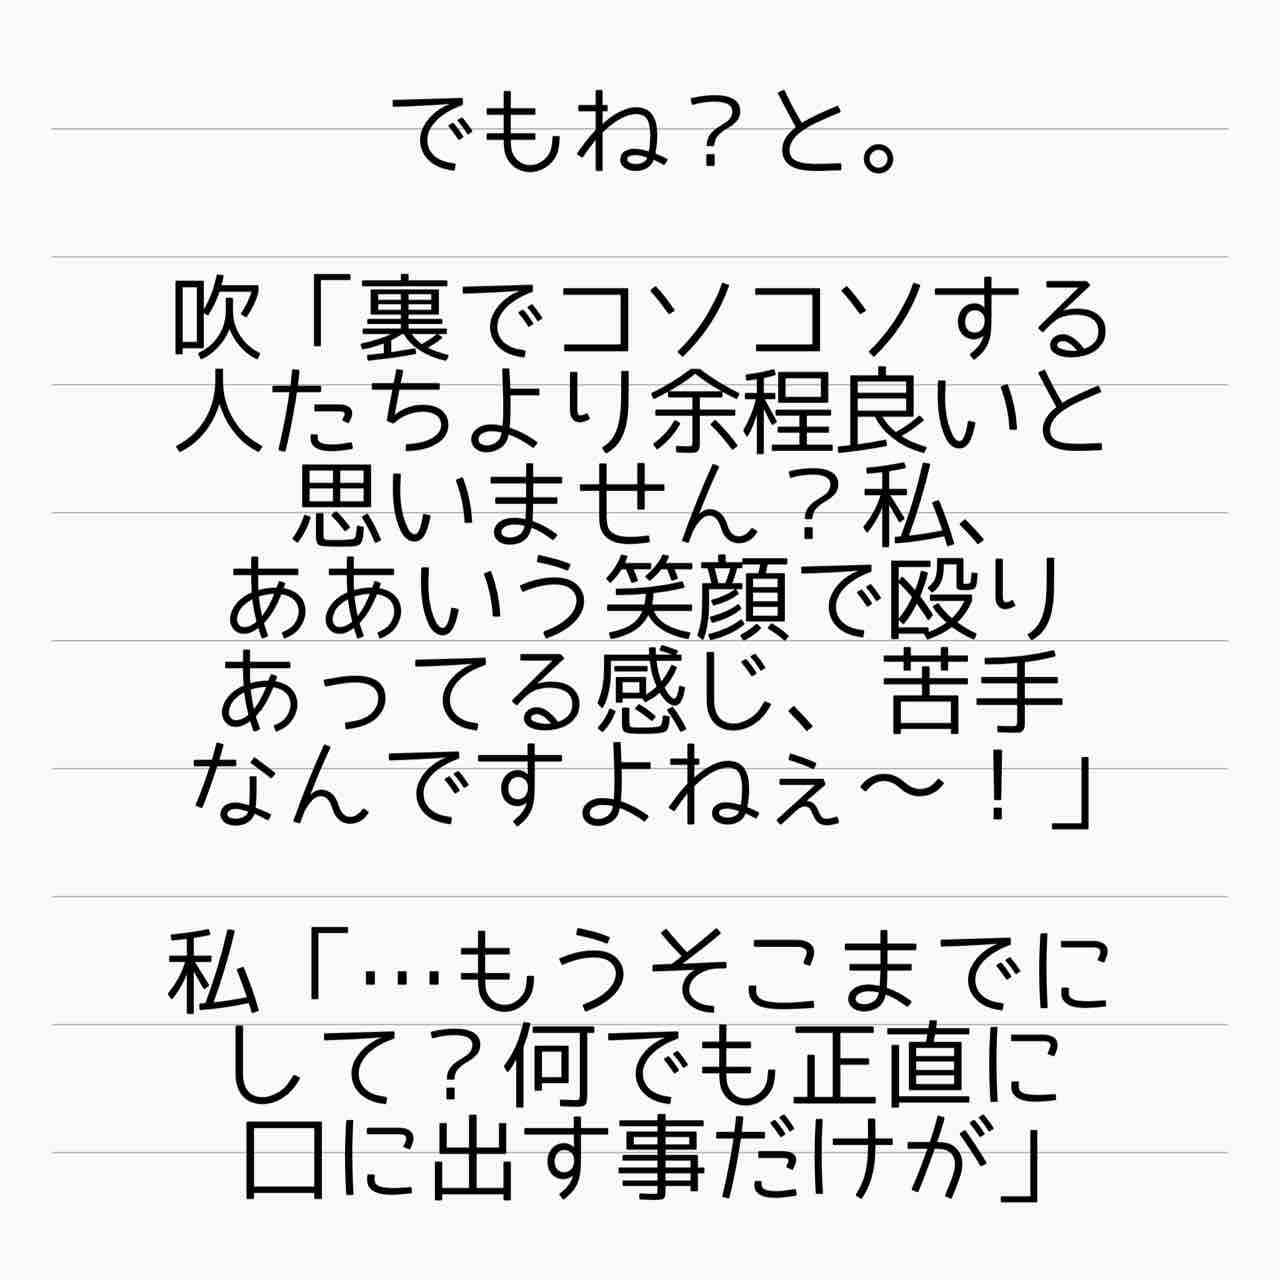 でもね？と。
吹「裏でコソコソする
人たちより余程良いと
思いません？私、
ああいう笑顔で殴り
あってる感じ、苦手
なんですよねぇ〜！」
私「…もうそこまでに
して？何でも正直に
口に出す事だけが」